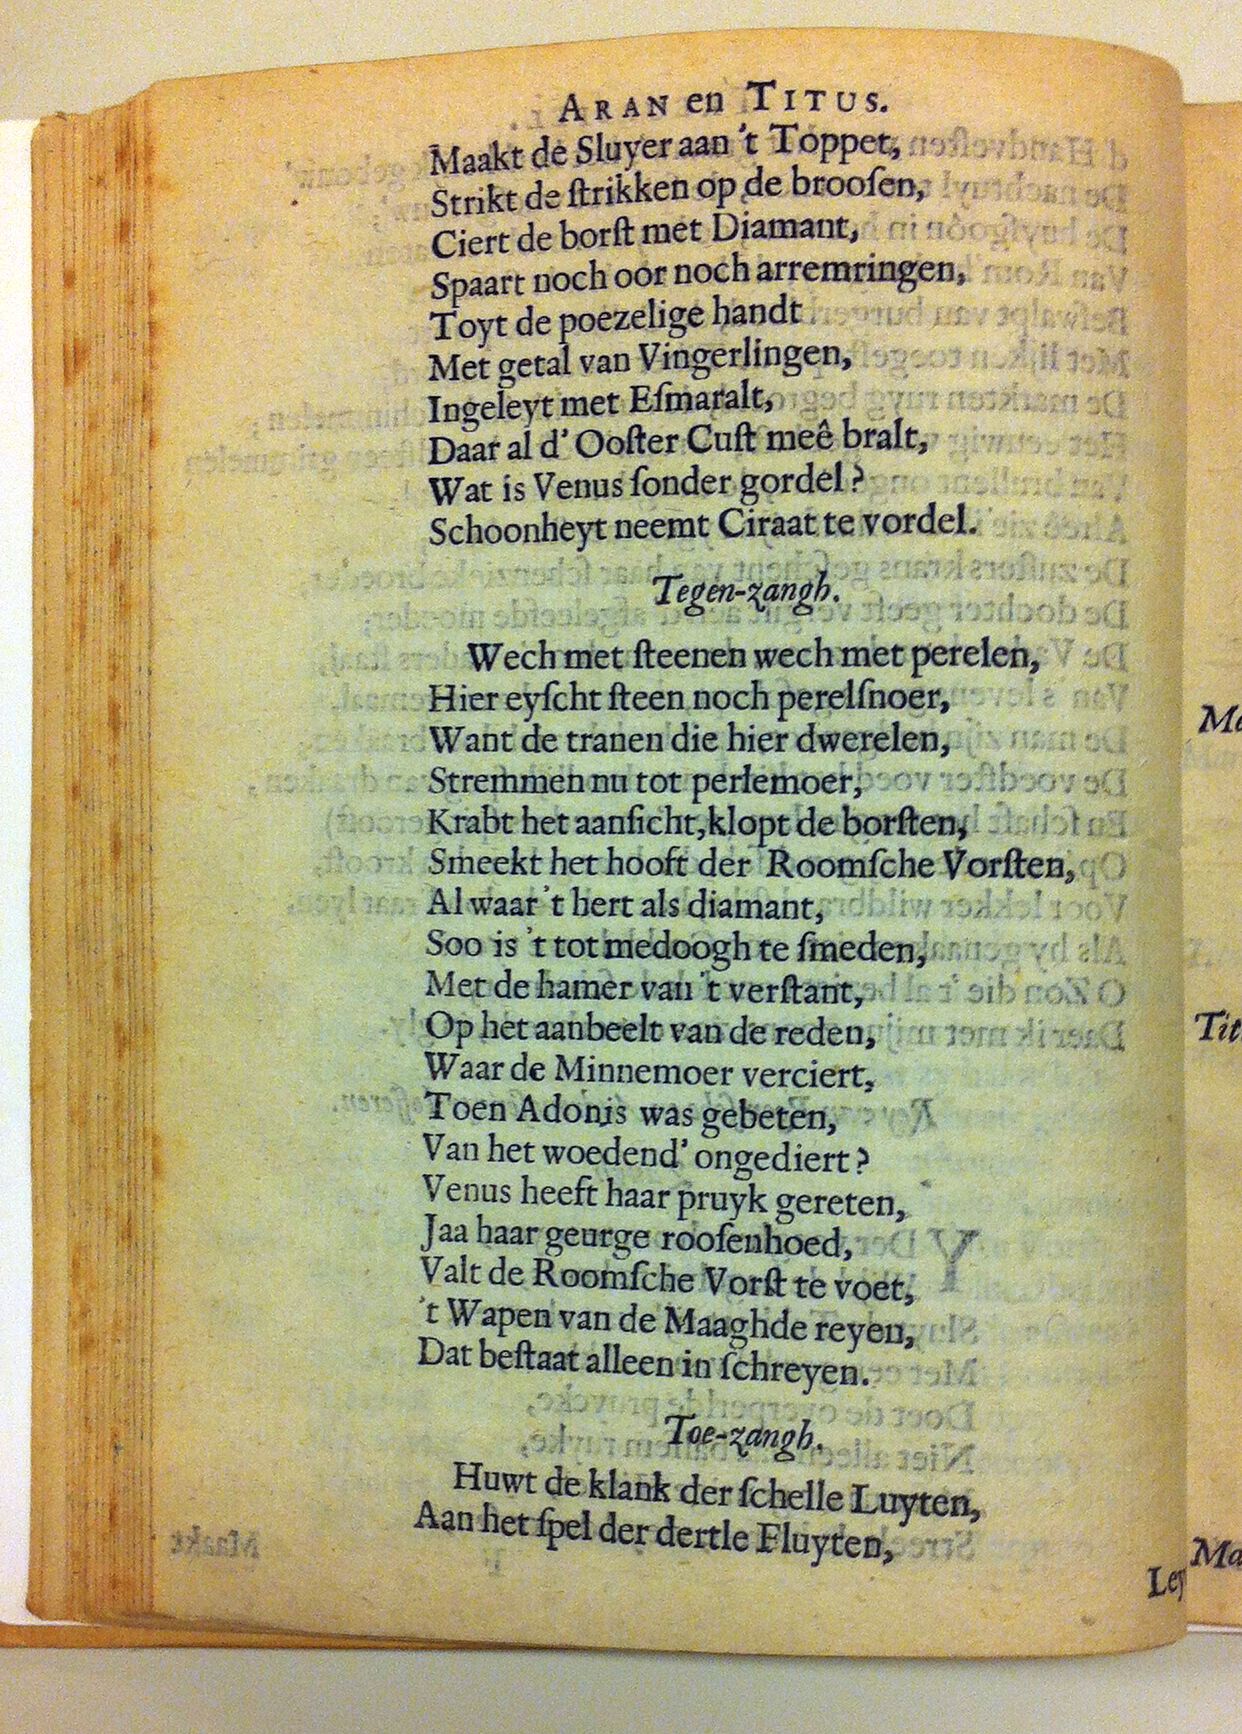 ARAN en TITUS.
Maakt de Sluyer aan 't Toppet,
Strikt de ſtrikken op de brooſen,
Ciert de borſt met Diamant,
Spaart noch oor noch arremringen,
Toyt de poezelige handt
Met getal van Vingerlingen,
Ingeleyt met Eſmaralt,
Daar al d' Ooſter Cuſt meê bralt,
Wat is Venus ſonder gordel?
Schoonheyt neemt Ciraat te vordel.
Tegen-zangh.
Wech met ſteenen wech met perelen,
Hier eyſcht ſteen noch perelſnoer,
Want de tranen die hier dwerelen,
Stremmen nu tot perlemoer,
Krabt het aanſicht, klopt de borſten,
Smeekt het hooft der Roomſche Vorſten,
Al waar 't hert als diamant,
Soo is 't tot medoogh te ſmeden,
Met de hamer van 't verſtant,
Op het aanbeelt van de reden,
Waar de Minnemoer verciert,
Toen Adonis was gebeten,
Van het woedend' ongediert?
Venus heeft haar pruyk gereten,
Jaa haar geurge rooſenhoed,
Valt de Roomſche Vorſt te voet,
't Wapen van de Maaghde reyen,
Dat beſtaat alleen in ſchreyen.
Toe-zangh.
Huwt de klank der ſchelle Luyten,
Aan het ſpel der dertle Fluyten,